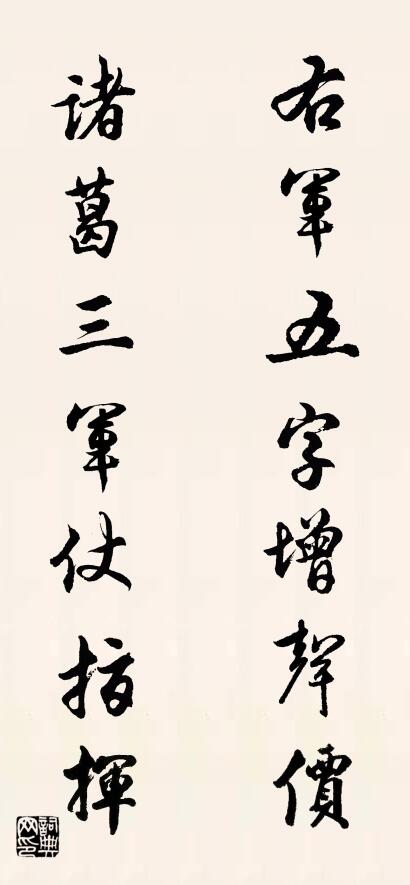 右軍五字增聲價
諸葛三軍仗指揮
詞典网印